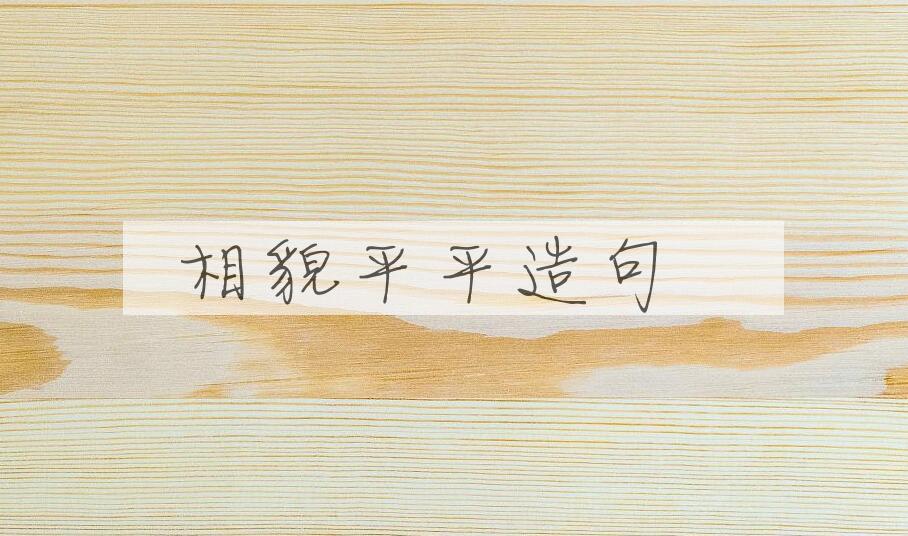 相貌平平造句